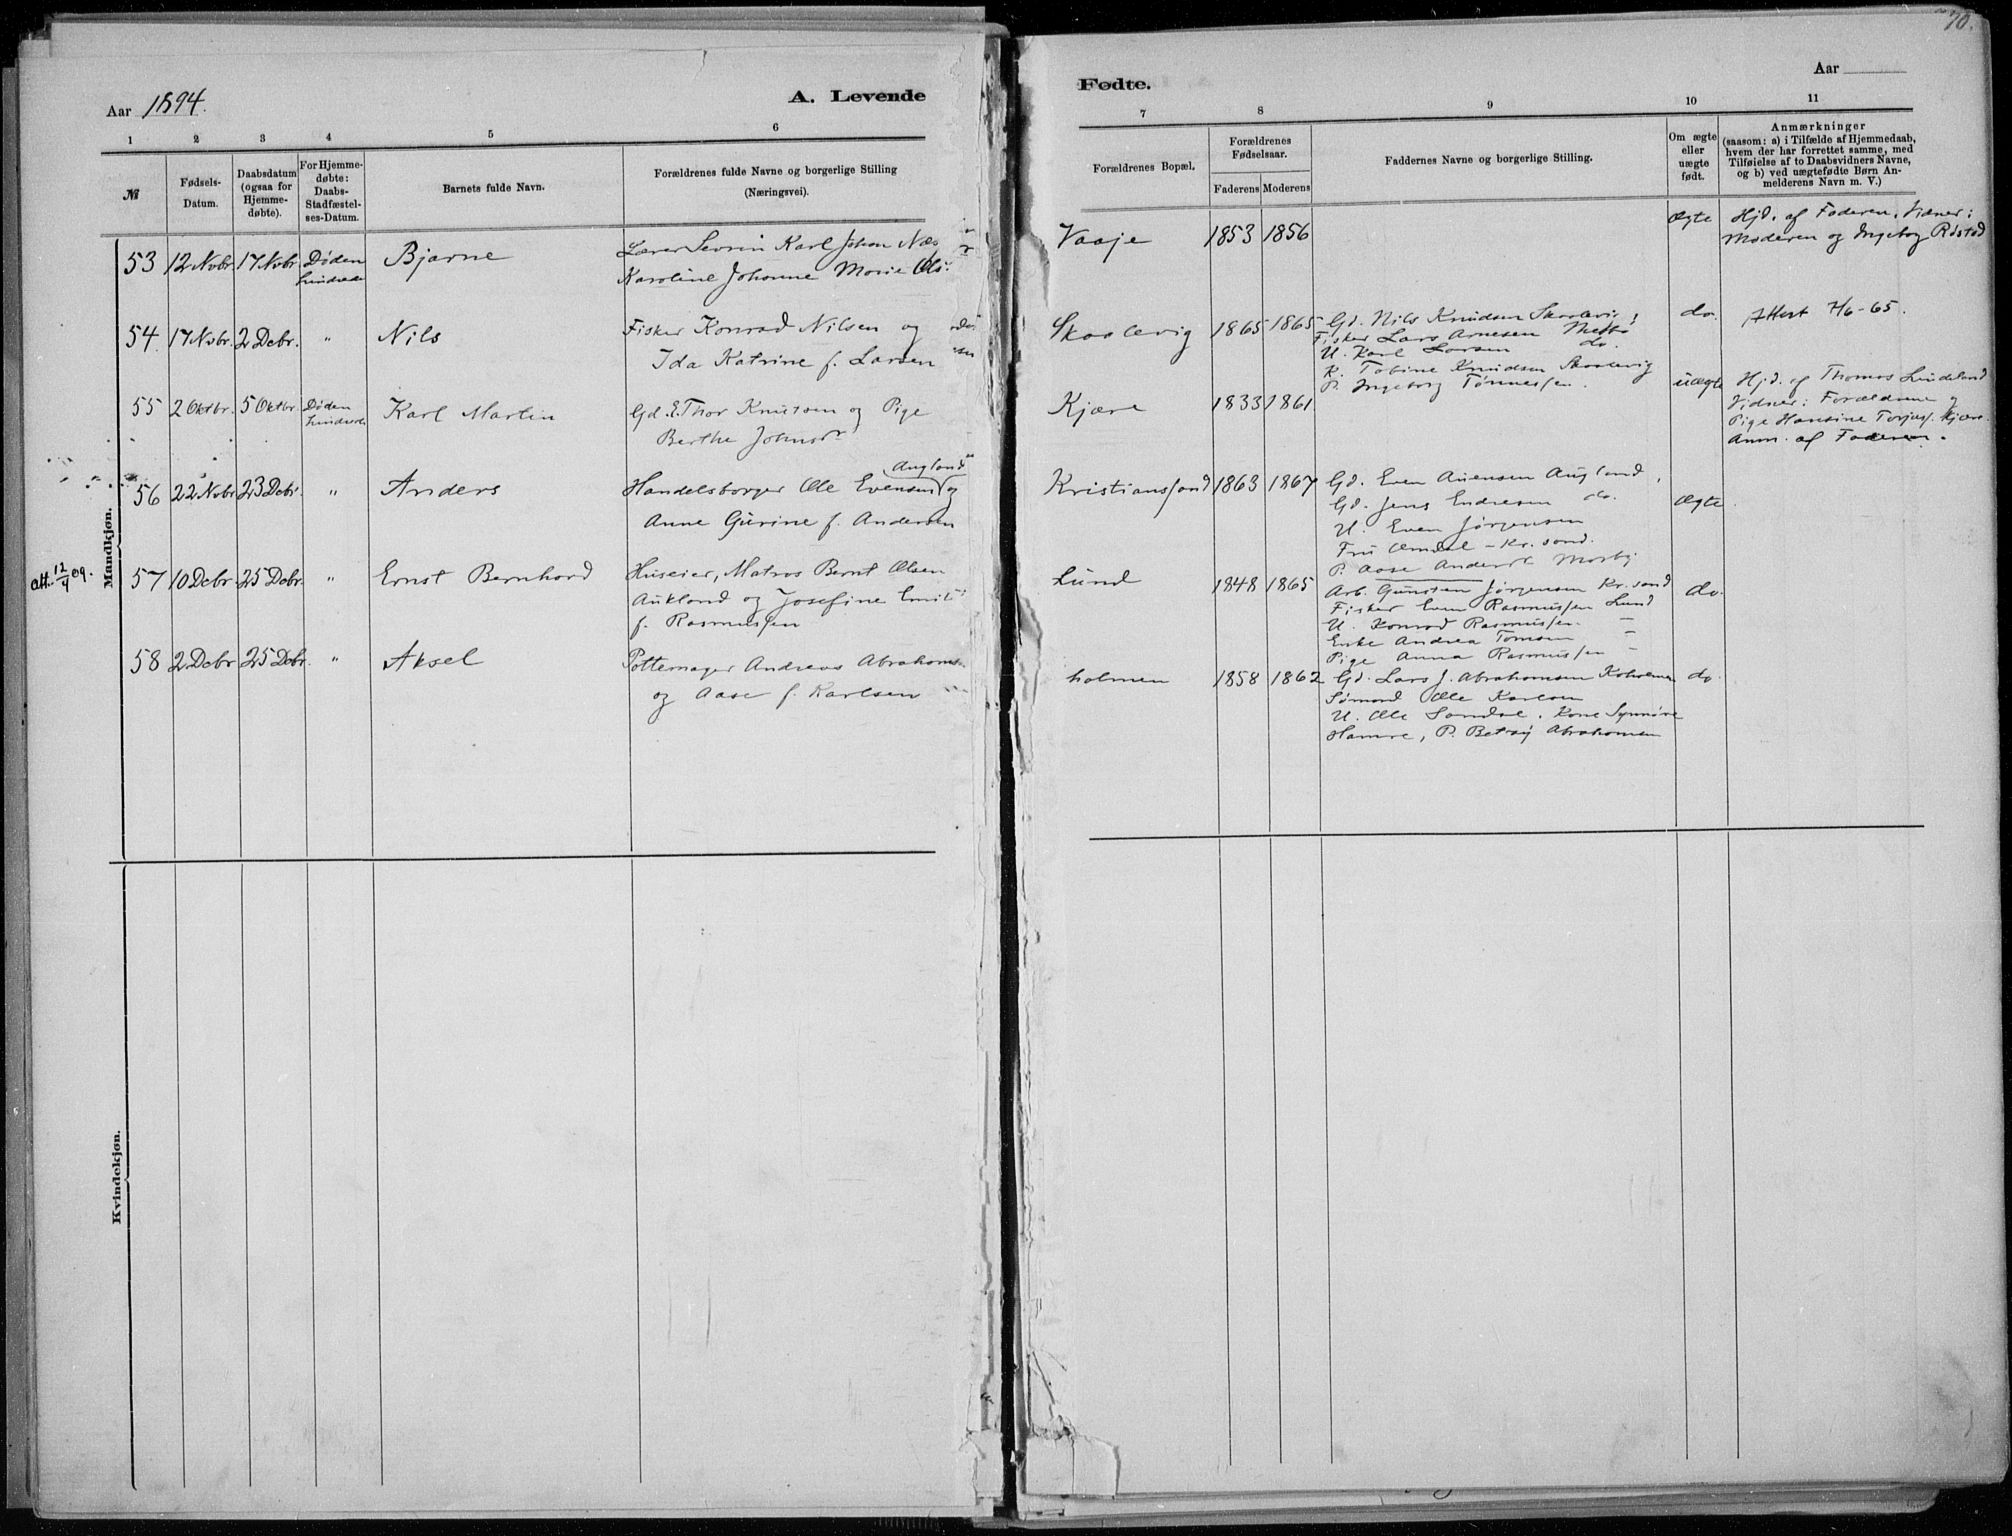 70.
Aar 1894.
A. Levende
Fødte.
Aar
1
2
3
4
5
6
7
8
9
10
11
№
Fødsels-
Datum.
Daabsdatum
(ogsaa for
Hjemme-
døbte).
For Hjemme-
døbte:
Daabs-
Stadfæstel-
ses-Datum.
Barnets fulde Navn.
Forældrenes fulde Navne og borgerlige Stilling
(Næringsvei).
Forældrenes Bopæl.
Forældrenes
Fødselsaar.
Faderens Moderens
Faddernes Navne og borgerlige Stilling.
Om ægte
eller
uægte
født.
Anmærkninger
(saasom: a) i Tilfælde af Hjemmedaab,
hvem der har forrettet samme, med
Tilføielse af to Daabsvidners Navne,
og b) ved uægtefødte Børn An-
melderens Navn m. V.)
Mandkjøn.
53 12 Novbr 17 Novbr Døden
hindrede
Bjarne
Lærer Sevrin Karl Johan Næs
Karoline Johanne Marie Ols
Vaaje
1853 1856
Ægte
Hjd. af Faderen. Vidner:
Moderen og Ingeborg Røstad
54. 17 Novbr. 2 Debr. "
Nils
Fisker Konrad Nilsen og
Ida Katrine f. Larsen
Skaalevig
1865 1865
Gd. Nils Knudsen Skaalevig
Fisker Lars Arnesen
U. Karl Larsen do.
K. Tobine Knudsen Skaalevig
P. Ingeborg Tønnessen.
do.
Attest 7/6-65.
55 2 Oktbr. 5 Oktbr. Døden
hindrede
Karl Martin
Gd. E. Thor Knutsen og Pige
Berthe Johnsdr
Kjære
1833 1861
uægte
Hjd. af Thomas Lindeland
Vidner: Forældrene og
Pige Hansine Torjusd. Kjære.
Anm. af Faderen.
56 22 Novbr 23 Debr. "
Anders
Augland
Handelsborger Ole Evensen og
Anne Gurine f. Andersen
Kristianssand
1863 1867
Gd. Even Auensen Augland,
Gd. Jens Endresen do.
U. Even Jørgensen
Fru Omdal - Kr. sand.
P. Aase Andersd. Mosby
Ægte
att. 12/4 09.
57 10 Debr. 25 Debr. "
Ernst Bernhard
Huseier, Matros Bernt Olsen
Aukland og Josefine Emilie
f. Rasmussen
Lund
1848 1865
Arb. Gunsten Jørgensen Kr. sand
Fisker Even Rasmussen Lund
U. Konrad Rasmussen -
Enke Andrea Tomsen -
Pige Anna Rasmussen -
do.
58 2 Debr 25 Debr. "
Aksel
Pottemager Andreas Abrahams
og Aase f. Karlsen
holmen
1858 1862
Gd. Lars J. Abrahamsen Koholmen
Sømand Ole Karlsen
U. Ole Sandal. Kone Synnøve
Hamre, P. Betsy Abrahamsen
do.
Kvindekjøn.